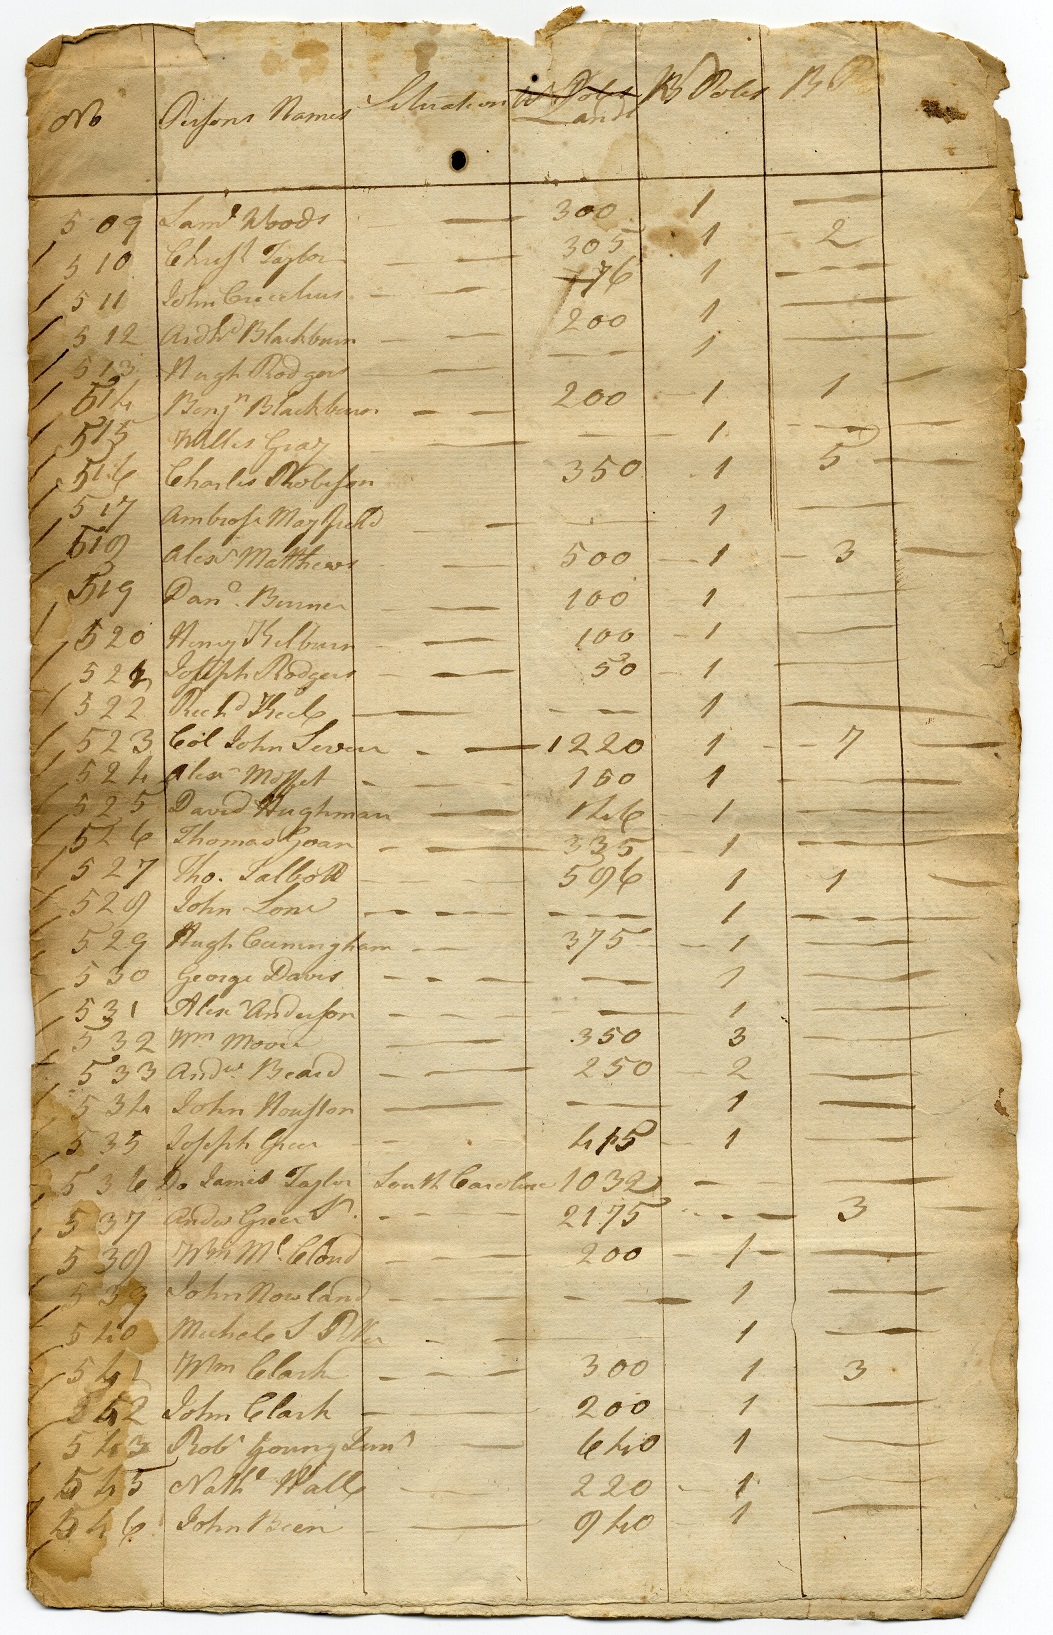 No Persons Names Situation W Poles Lands W Poles B P
509 Saml Woods 300 1
510 Christ Taylor 305 1 2
511 John 176 1
512 Andw Blackburn 200 1
513 Hugh Rodgers 1
514 Benjn Blackburn 200 1 1
515 Gray 1
516 Charles Robison 350 1 5
517 Ambrose Mayfield 1
518 Alexr Matthews 500 1 3
519 Danl 100 1
520 Henry Kilburn 100 1
521 Joseph Rodgers 50 1
522 Richd Keele 1
523 Col John Sevier 1220 1 7
524 Alexr Moffet 150 1
525 David Hughman 146 1
526 Thomas Goan 335 1
527 Tho. Talbott 596 1 1
528 John Lone 1
529 Hugh Cuningham 375 1
530 George Davis 1
531 Alexr Anderson 1
532 Wm Moore 350 3
533 Andw Beard 250 2
534 John Houston 1
535 Joseph Greer 415 1
536 Do James Taylor South Caroline 1032
537 Andw Greer Sr. 2175 3
538 Wm Mc Cloud 200 1
539 John Nowland 1
540 1
541 Wm Clark 300 1 3
542 John Clark 200 1
543 Robt Young Junr 640 1
545 Nathl Hall 220 1
546 John Been 940 1